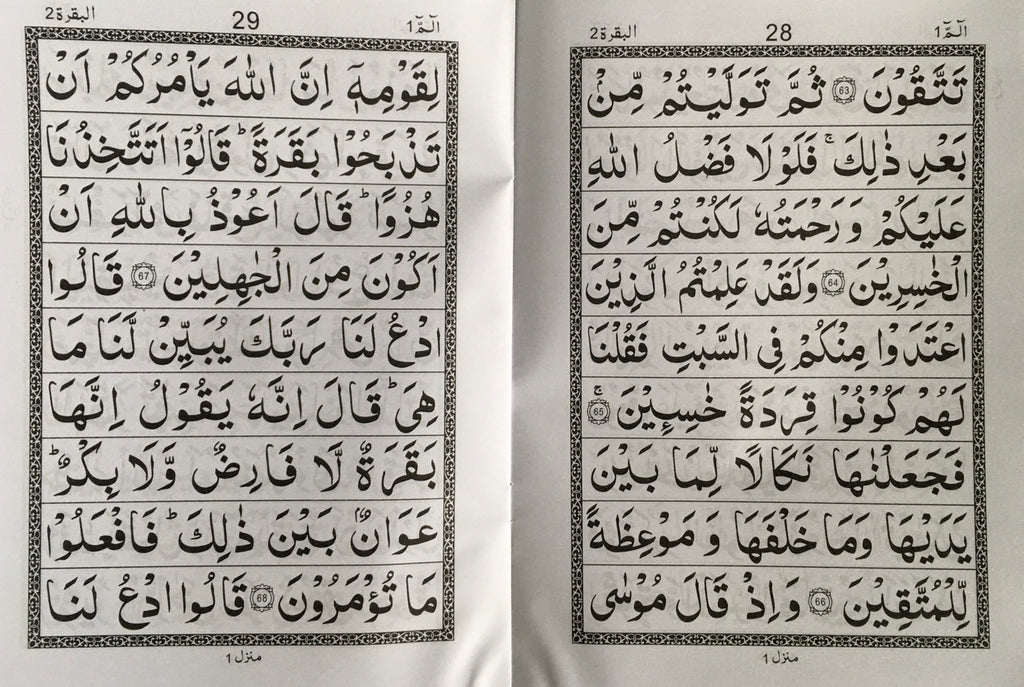 الٓمّٓ 1
28
البقرة 2
تَتَّقُوْنَ ﴿63﴾ ثُمَّ تَوَلَّيْتُمْ مِّنْۢ
بَعْدِ ذٰلِكَ ۚ فَلَوْلَا فَضْلُ اللّٰهِ
عَلَيْكُمْ وَرَحْمَتُهٗ لَكُنْتُمْ مِّنَ
الْخٰسِرِيْنَ ﴿64﴾ وَلَقَدْ عَلِمْتُمُ الَّذِيْنَ
اعْتَدَوْا مِنْكُمْ فِى السَّبْتِ فَقُلْنَا
لَهُمْ كُوْنُوْا قِرَدَةً خٰسِـِٕيْنَ ۚ﴿65﴾
فَجَعَلْنٰهَا نَكَالًا لِّمَا بَيْنَ
يَدَيْهَا وَمَا خَلْفَهَا وَ مَوْعِظَةً
لِّلْمُتَّقِيْنَ ﴿66﴾ وَاِذْ قَالَ مُوْسٰى
منزل 1
الٓمّٓ 1
29
البقرة 2
لِقَوْمِهٖٓ اِنَّ اللّٰهَ يَاْمُرُكُمْ اَنْ
تَذْبَحُوْا بَقَرَةً ؕ قَالُوْٓا اَتَتَّخِذُنَا
هُزُوًا ؕ قَالَ اَعُوْذُ بِاللّٰهِ اَنْ
اَكُوْنَ مِنَ الْجٰهِلِيْنَ ﴿67﴾ قَالُوا
ادْعُ لَنَا رَبَّكَ يُبَيِّنْ لَّنَا مَا
هِىَ ؕ قَالَ اِنَّهٗ يَقُوْلُ اِنَّهَا
بَقَرَةٌ لَّا فَارِضٌ وَّلَا بِكْرٌ ؕ
عَوَانٌۢ بَيْنَ ذٰلِكَ ؕ فَافْعَلُوْا
مَا تُؤْمَرُوْنَ ﴿68﴾ قَالُوا ادْعُ لَنَا
منزل 1